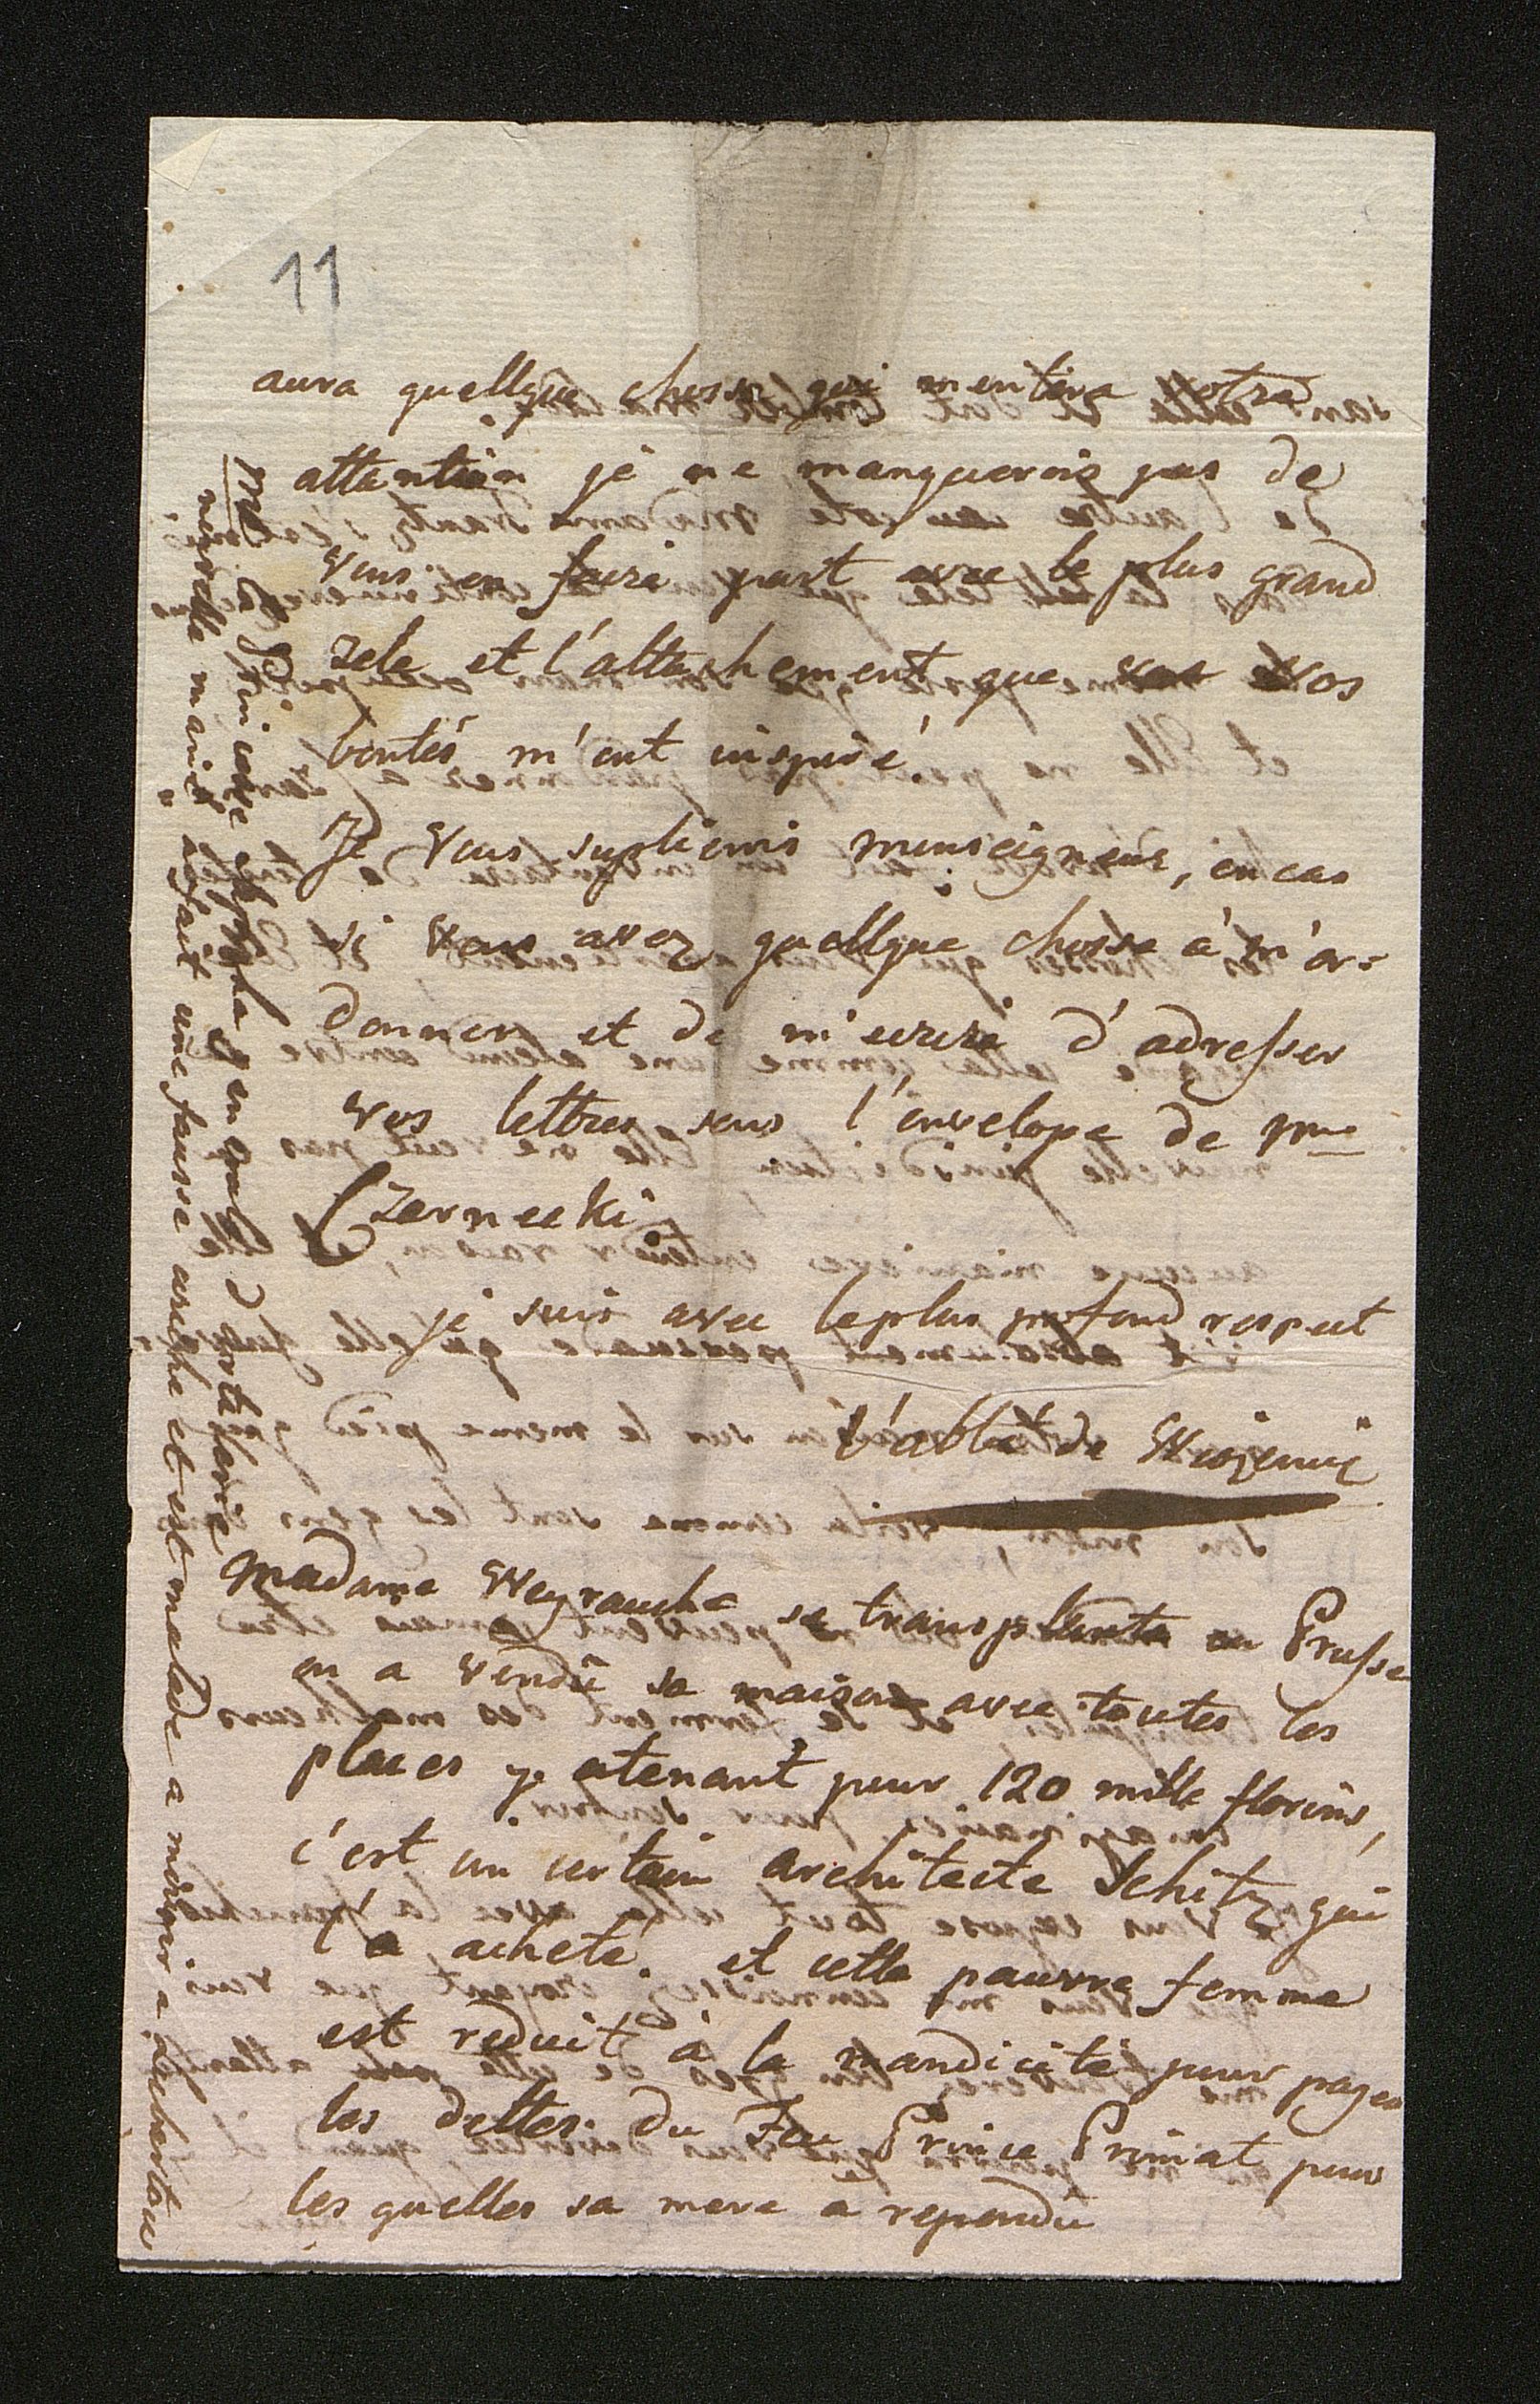 11
aura quellque chosse qui meritera votre
attention je ne manquerois pas de
vous en faire part avec le plus grand
zele et l'attachement que vos
bontés m'ont inspiré.
Je vous suplierois monseigneur, en cas
si vous avez quellque chosse à m'or=
donner et de m'ecrire d'adresser
vos lettres sous l'envelope de Mme
Czernecki.
je suis avec le plus profond respect
l'abbé de
Madame Weyrauch se transplante en Prusse
on a vendu sa maison avec toutes les
places y atenant pour 120 mille florins,
c'est un certain architecte Schitz qui
l'a acheté. et cette pauvre femme
est reduit à la mandicité pour payer
les dettes du Feu Prince Primat pour
les quelles sa mere a repondu
nouvelle mariée a fait une fausse couche et est malade a mourir a